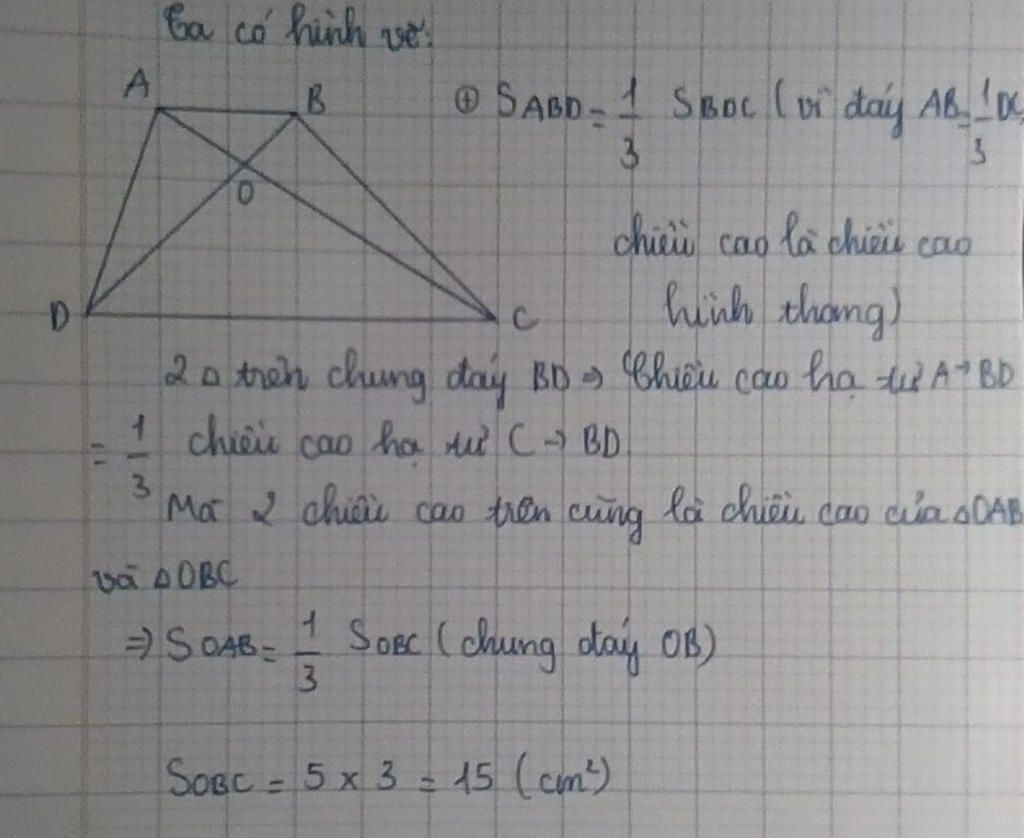 Ta có hình vẽ:
A
B
O
D
C
⊕ SABD = 1/3 SBDC (vì đáy AB = 1/3 DC,
chiều cao là chiều cao
hình thang)
2 △ trên chung đáy BD ⇒ Chiều cao hạ từ A → BD
= 1/3 chiều cao hạ từ C → BD
Mà 2 chiều cao trên cũng là chiều cao của △OAB
và △OBC
⇒ SOAB = 1/3 SOBC (chung đáy OB)
SOBC = 5 × 3 = 15 (cm²)